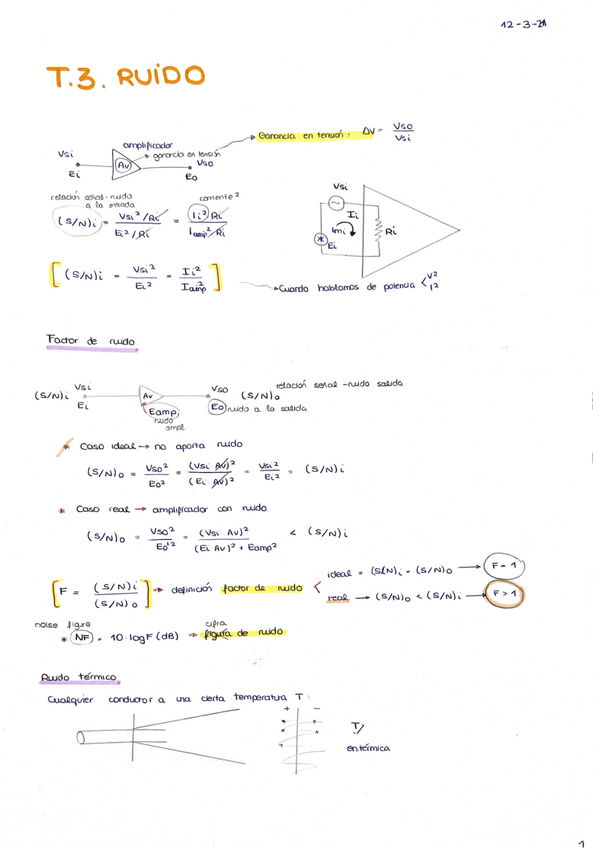 12-3-21
T.3. RUIDO
amplificador
Vsi
Av
ganancia en tensión
Vso
Ei
Eo
Ganancia en tensión: ΔV = Vso / Vsi
relación señal-ruido
a la entrada
corriente²
(S/N)i = Vsi²/Ri / Ei²/Ri = Ii² Ri / Iamp² Ri
Vsi
Ii
Imi
Ei
Ri
[ (S/N)i = Vsi² / Ei² = Ii² / Iamp² ]
Cuando hablamos de potencia < V² I²
Factor de ruido
(S/N)i
Vsi
Ei
Av
Eamp,
ruido
ampl
Vso
(S/N)o
relación señal-ruido salida
Eo) ruido a la salida
* Caso ideal → no aporta ruido
(S/N)o = Vso² / Eo² = (Vsi Av)² / (Ei Av)² = Vsi² / Ei² = (S/N)i
* Caso real → amplificador con ruido
(S/N)o = Vso² / Eo'² = (Vsi Av)² / (Ei Av)² + Eamp² < (S/N)i
[ F = (S/N)i / (S/N)o ] → definición factor de ruido <
ideal = (S/N)i = (S/N)o → F = 1
real → (S/N)o < (S/N)i → F > 1
noise figure
cifra
* NF = 10·logF (dB) → figura de ruido
Ruido térmico
Cualquier conductor a una cierta temperatura T:
+ -
T/
en térmica
1